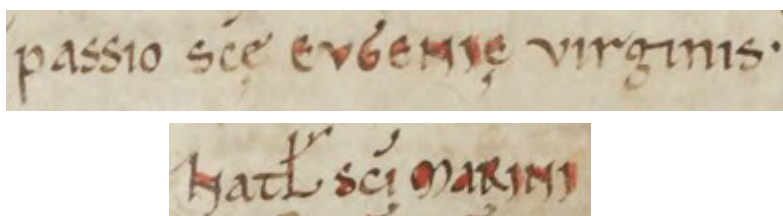 passio scę EVGENIĘ virginis·
Natł sci MARINI